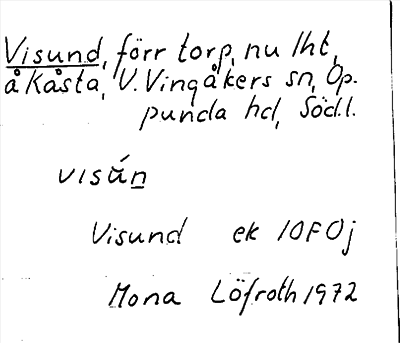 Visund, förr torp, nu lht,
å Kåsta, V. Vingåkers sn, Op-
punda hd, Södl.
visún
Visund ek 10F0j
Mona Löfroth 1972